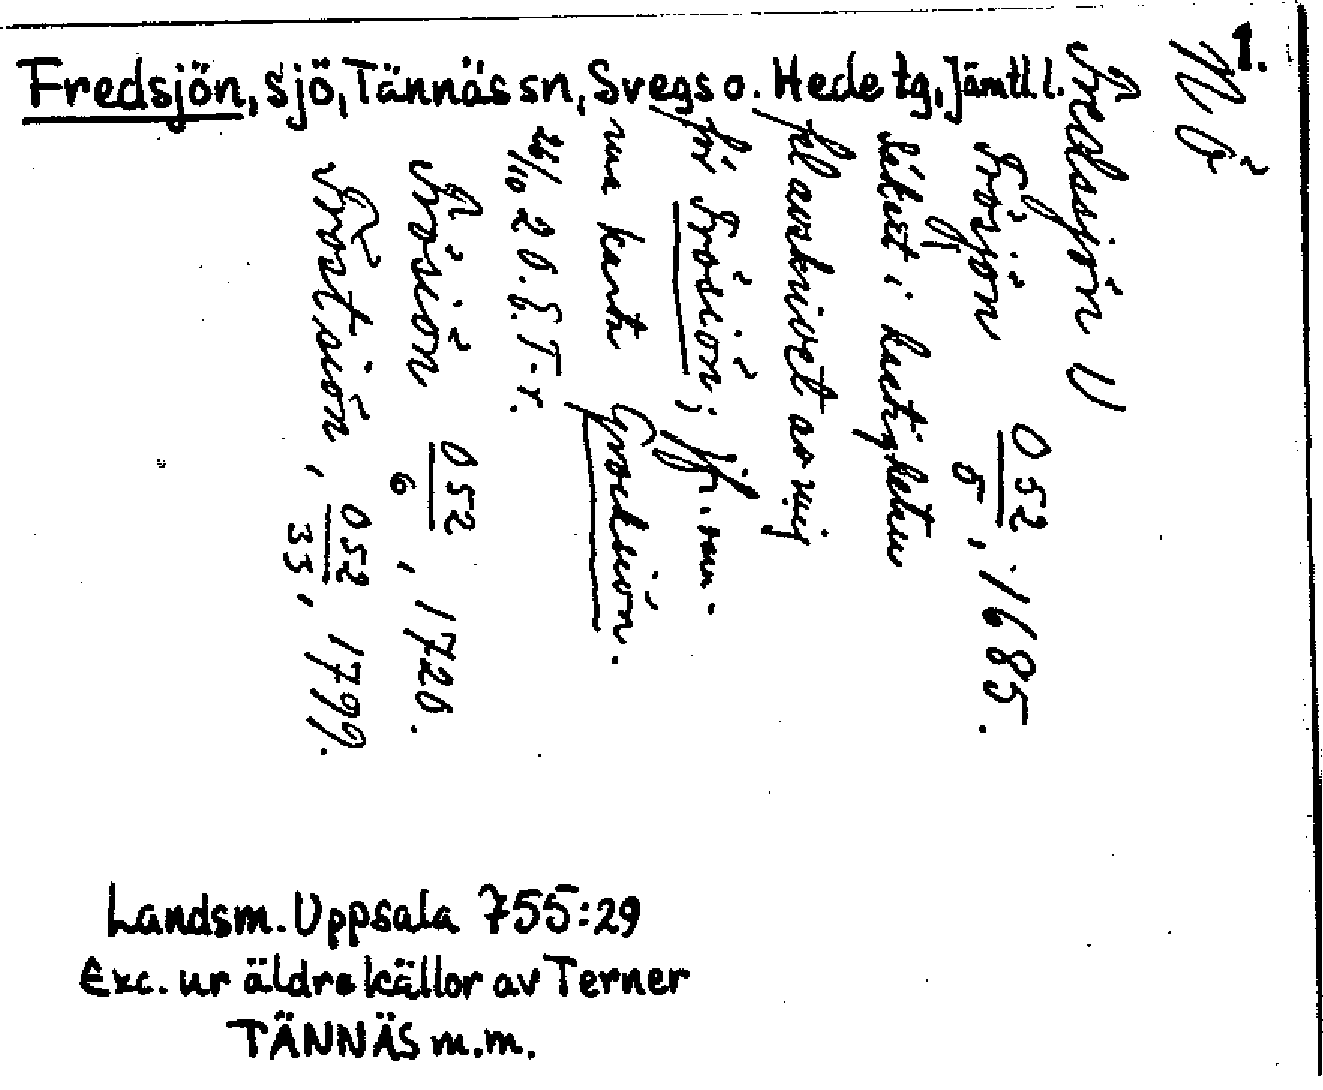 1.
Fredsjön, sjö, Tännäs sn, Svegs o. Hede tg, Jämtl. l.
N ö
Fredssjön U
Frösjön 052/5, 1685.
säkert i hastigheten
fel avskrivet av mig
för Frösion; jfr. sam-
ma karta Grocksión.
26/10 20. E. T-r.
Frösiön 052/6, 1720.
Fröstsiön, 052/33, 1799.
Landsm. Uppsala 755:29
Exc. ur äldre källor av Terner
TÄNNÄS m.m.